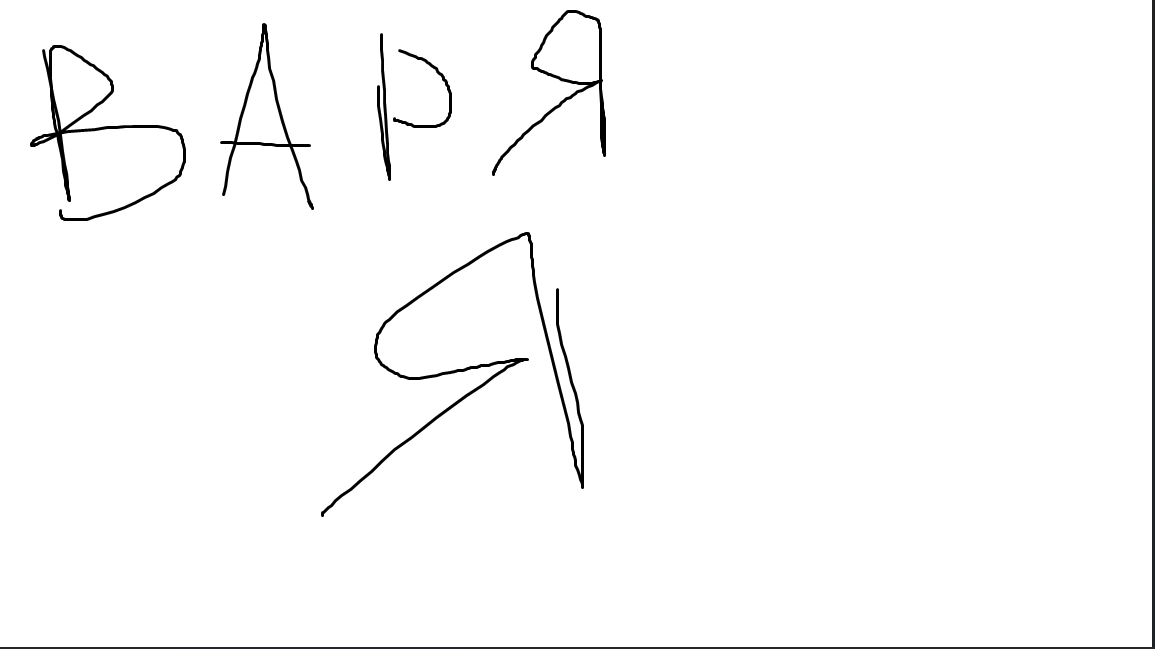 ВАРЯ
Я